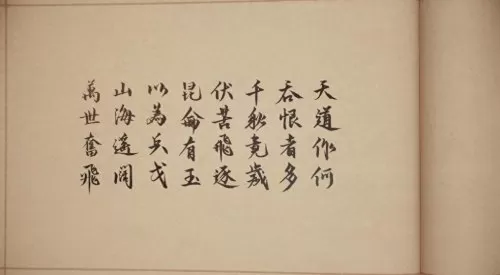 天道作何
吞恨者多
千秋竟歲
伏苦飛逐
昆侖有玉
以為兵戈
山海遙闊
萬世奮飛